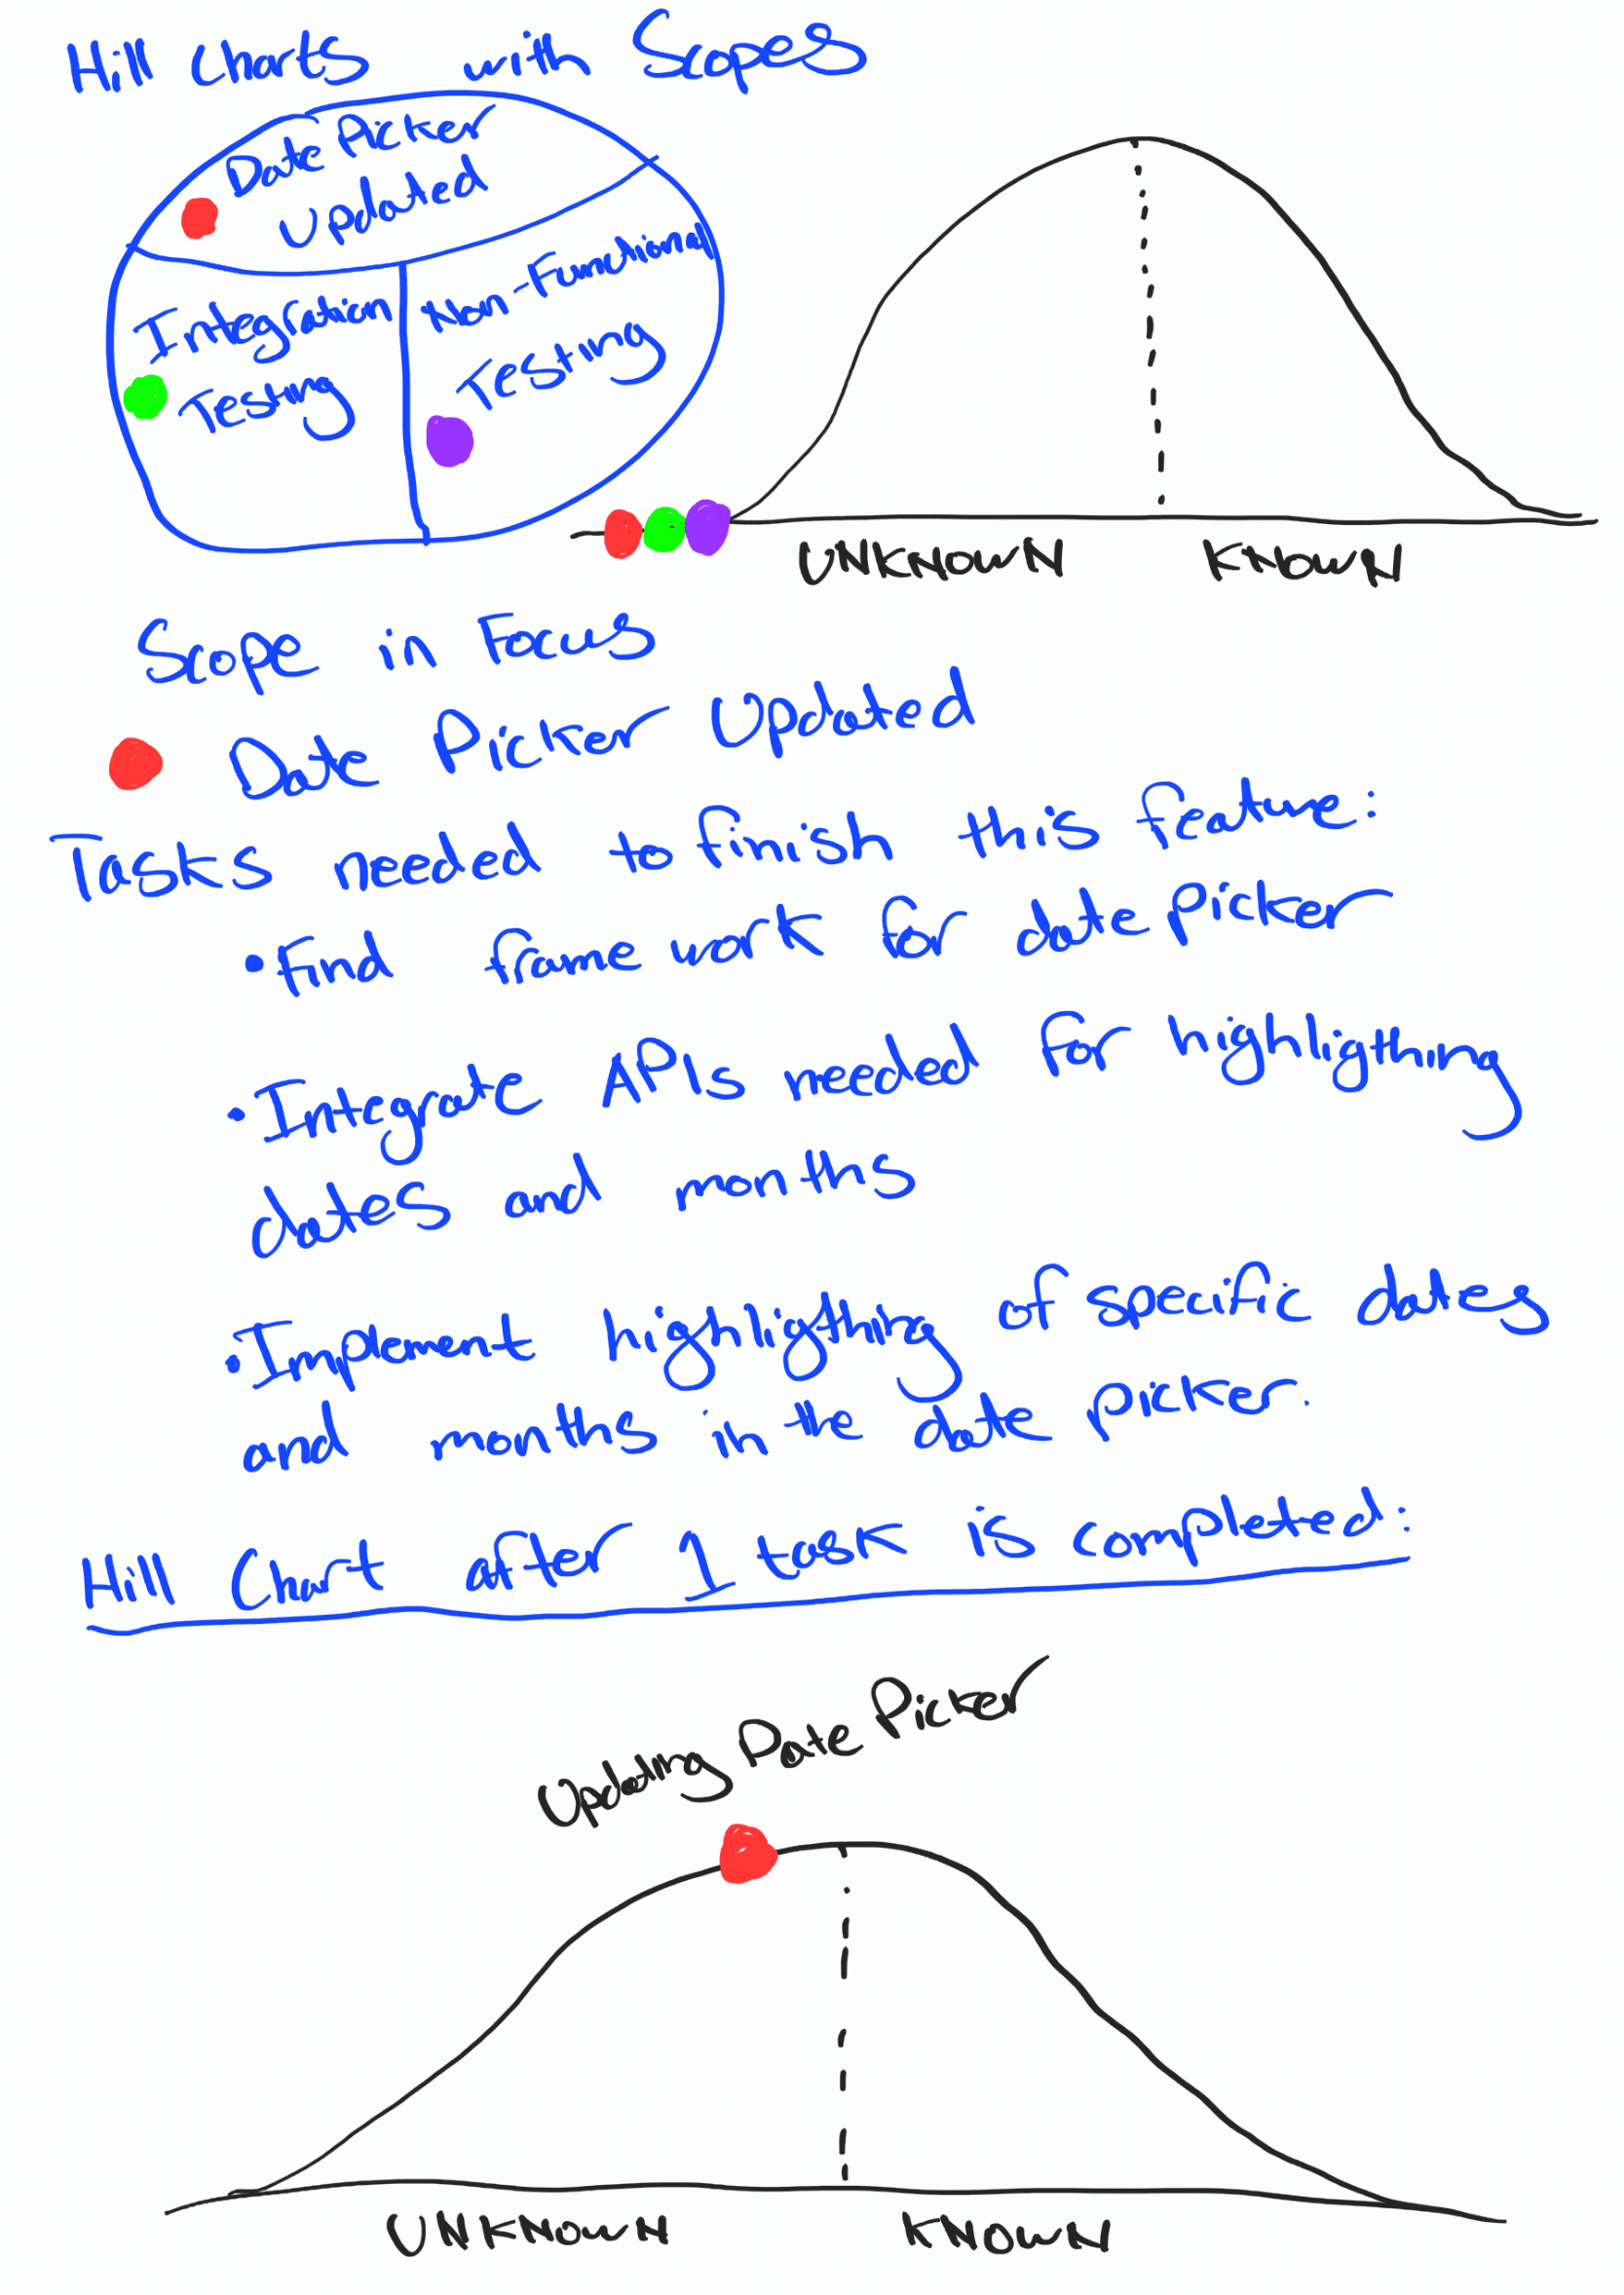 Hill Charts with Scopes
Date Picker
Updated
Integration
Testing
Non-Functional
Testing
UNKNOWN KNOWN
Scope in Focus
Date Picker Updated
Tasks needed to finish this feature:
• Find framework for date picker
• Integrate APIs needed for highligthing
dates and months
• Implement highligthing of specific dates
and months in the date picker.
Hill Chart after 1 task is completed:
Updating Date Picker
UNKNOWN KNOWN